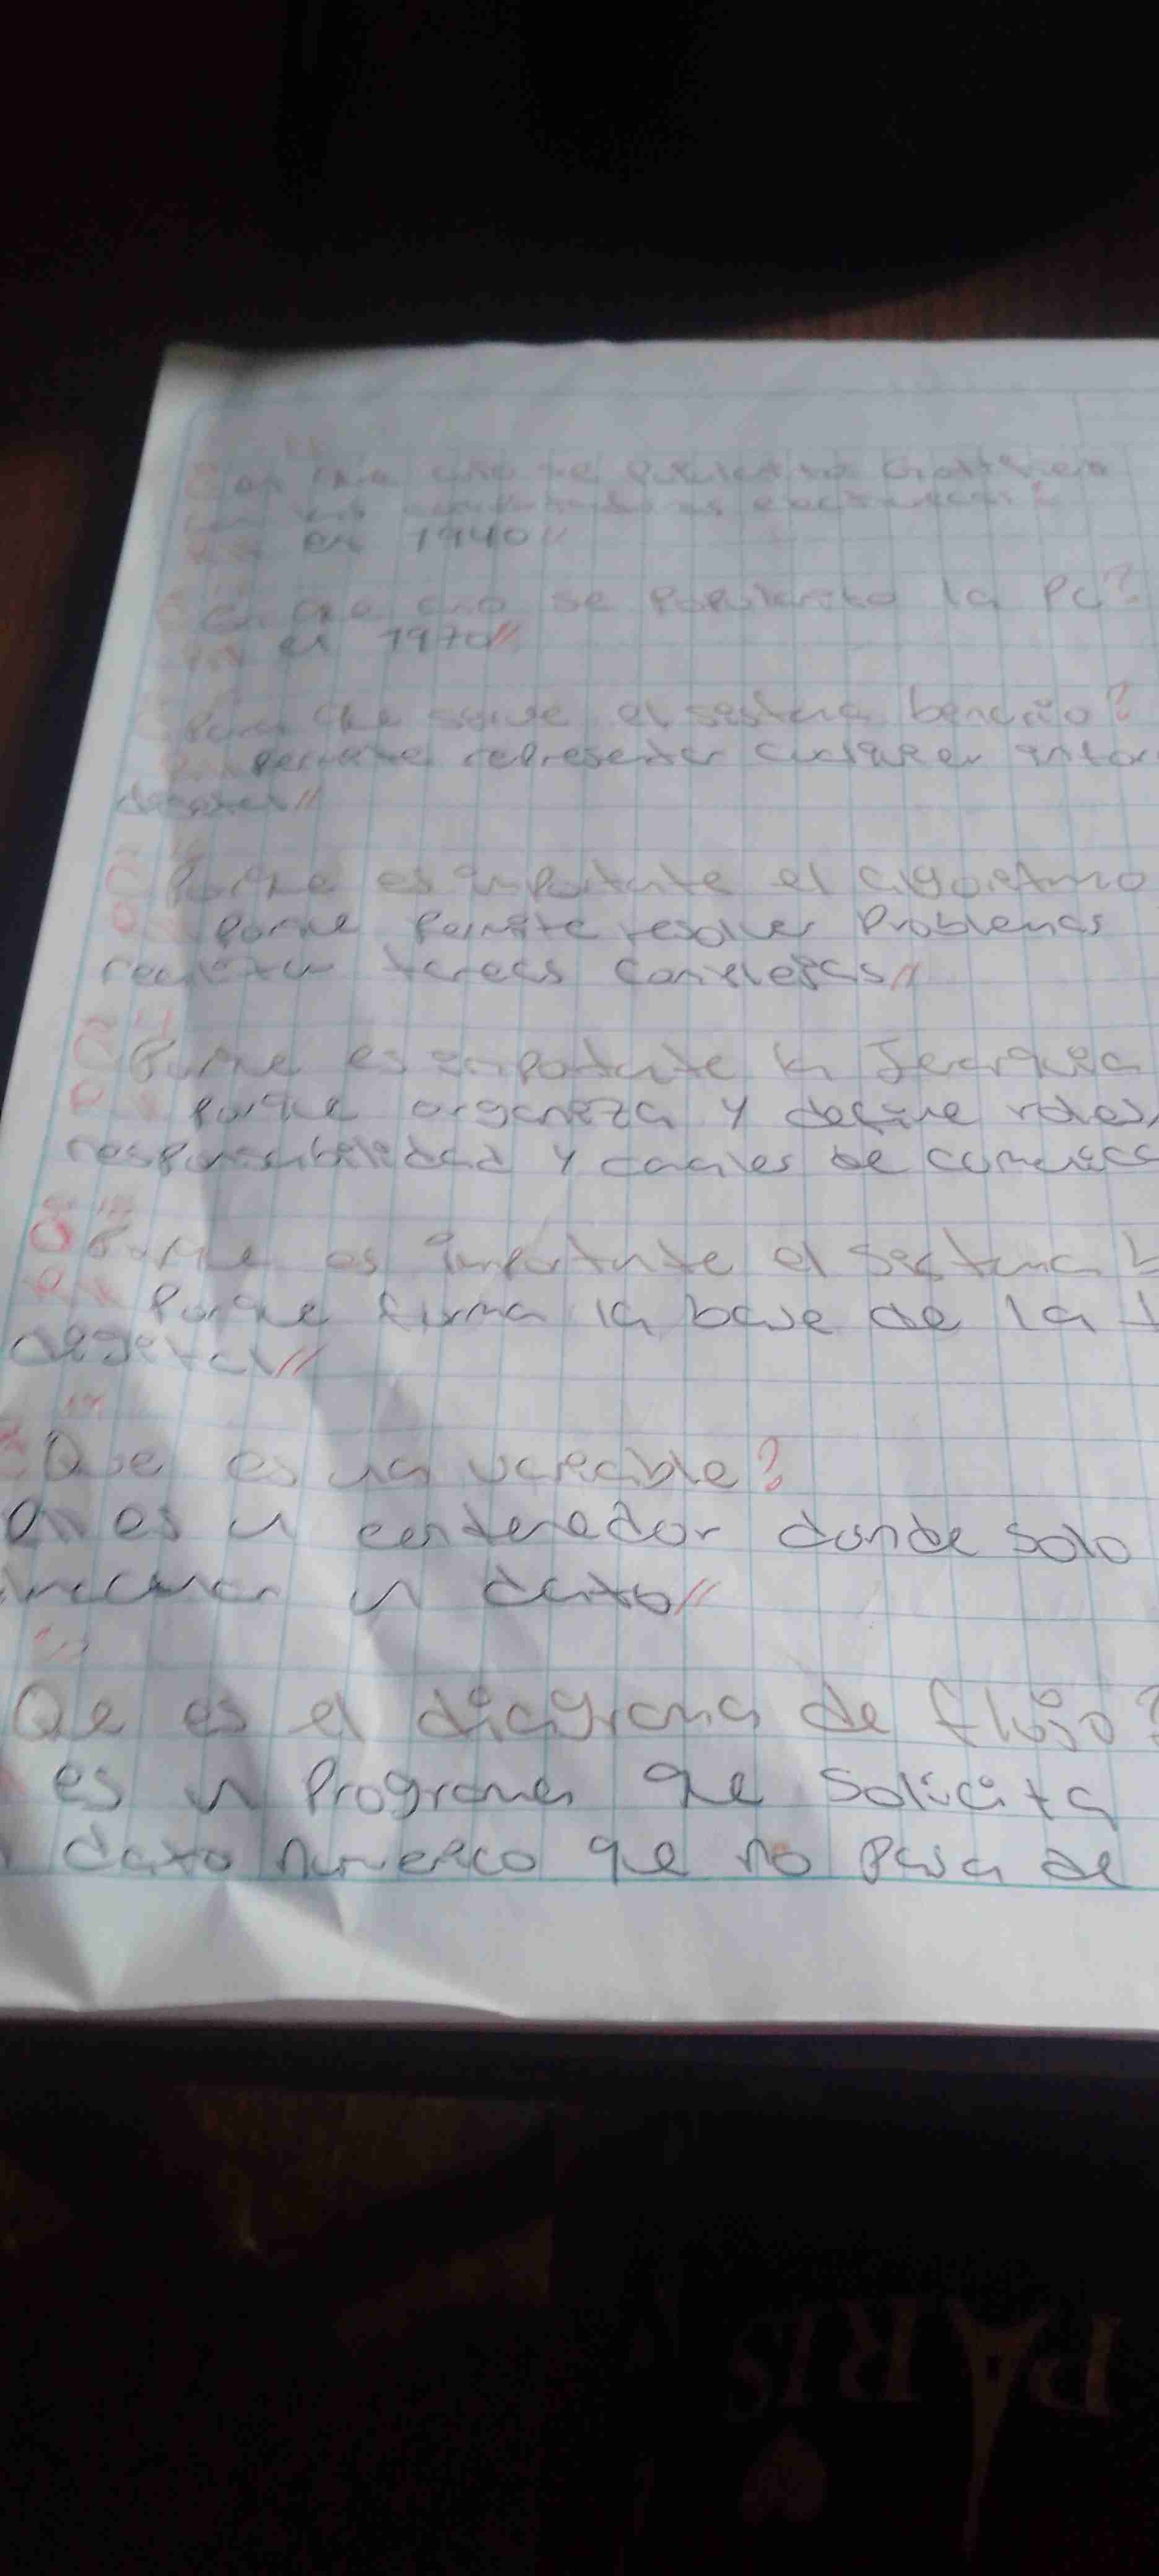 en 1940//
en que año se popularizo la PC?
en 1970//
Para que sirve el sistema benario?
permite representar cualquier infor
digital//
Porque es importante el algoritmo
porque permite resolver Problemas
realizar tareas complejas//
Porque es importante la Jerarquia
porque organiza y define roles,
responsabilidad y canales de comunica
Porque es importante el sistema b
Porque forma la base de la t
digital//
Que es una variable?
es un contenedor donde solo
un dato//
Qe es el diagrama de flujo?
es un Programa qe solicita
dato numerico qe no pasa de
PARIS